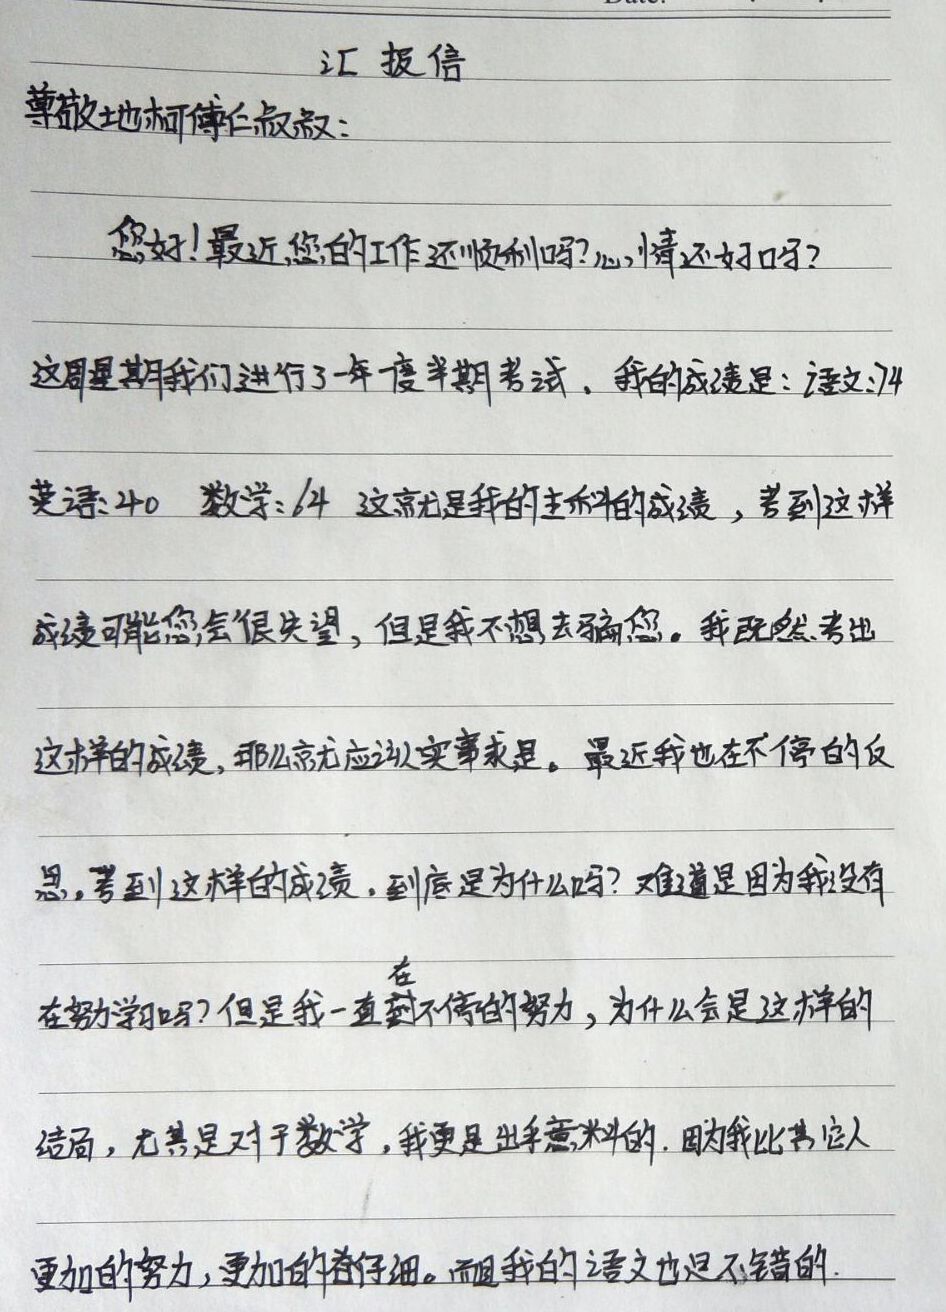 Date:
汇报信
尊敬地柯傅仁叔叔：
您好！最近您的工作还顺利吗？心情还好吗？
这周星期我们进行了一年一度半期考试．我的成绩是：语文：74
英语：40 数学：64 这就是我的主科的成绩，考到这样
成绩可能您会很失望，但是我不想去骗您。我既然考出
这样的成绩，那么就应该实事求是。最近我也在不停的反
思。考到这样的成绩．到底是为什么吗？难道是因为我没有
在努力学习吗？但是我一直在不停的努力，为什么会是这样的
结局，尤其是对于数学，我更是出乎意料的．因为我比其它人
更加的努力，更加的仔细。而且我的语文也是不错的．